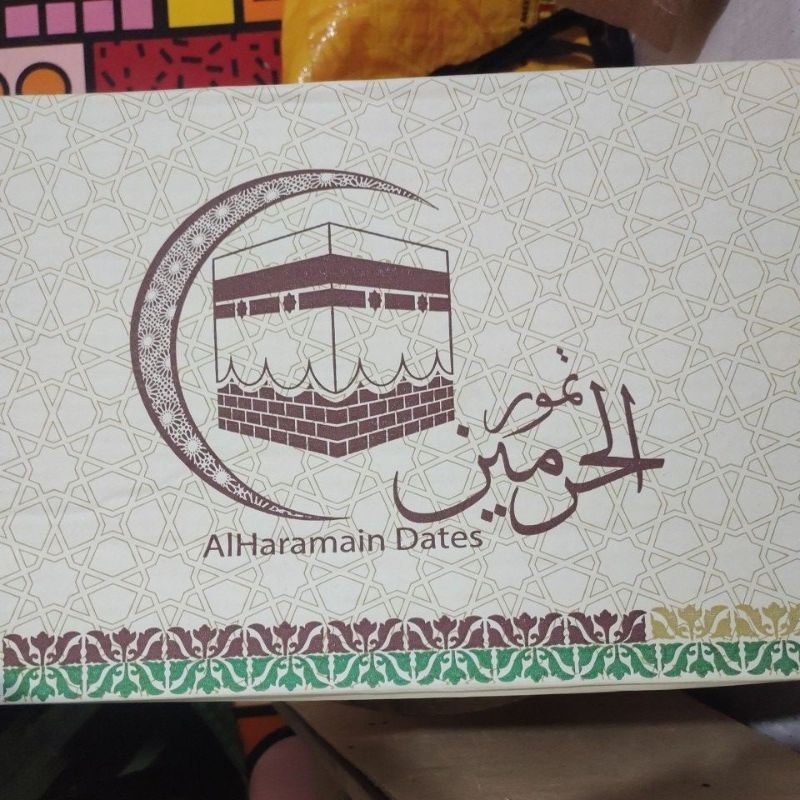 تمور
الحرمين
AlHaramain Dates